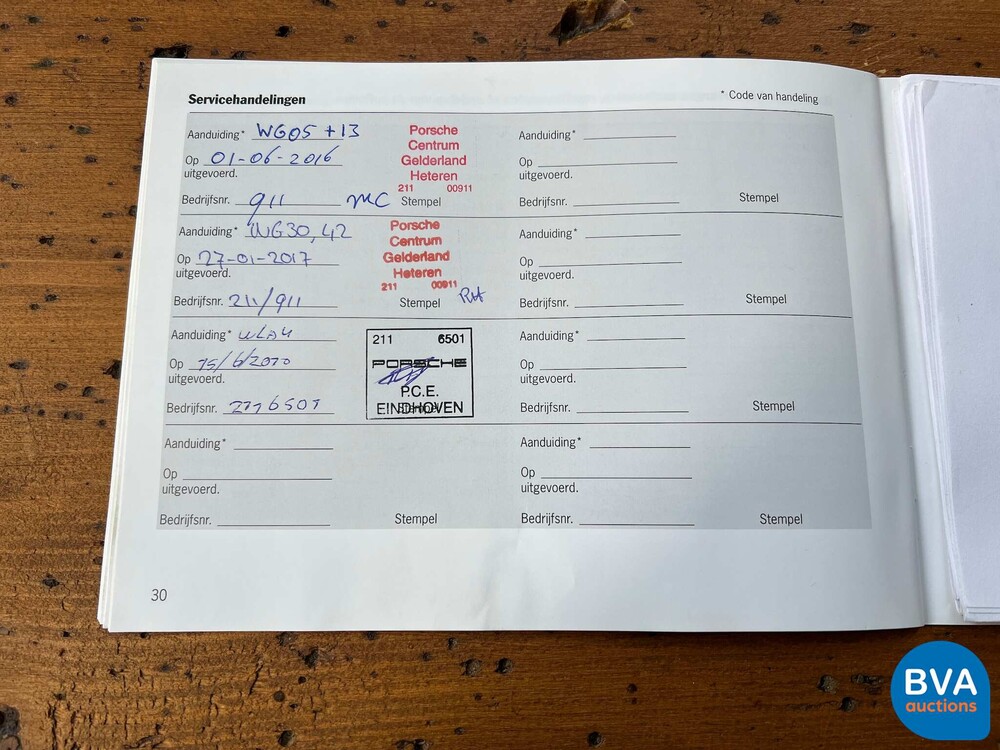 Servicehandelingen
* Code van handeling
Aanduiding* WG05 +13
Op 01-06-2016
uitgevoerd.
Bedrijfsnr. 911 MC
Porsche
Centrum
Gelderland
Heteren
211 00911
Stempel
Aanduiding*
Op
uitgevoerd.
Bedrijfsnr.
Stempel
Aanduiding* WG30, 42
Op 27-01-2017
uitgevoerd.
Bedrijfsnr. 211/911
Porsche
Centrum
Gelderland
Heteren
211 00911
Stempel
Aanduiding*
Op
uitgevoerd.
Bedrijfsnr.
Stempel
Aanduiding* WLA4
Op 15/6/2020
uitgevoerd.
Bedrijfsnr. 2116501
211 6501
PORSCHE
P.C.E.
EINDHOVEN
Stempel
Aanduiding*
Op
uitgevoerd.
Bedrijfsnr.
Stempel
Aanduiding*
Op
uitgevoerd.
Bedrijfsnr.
Stempel
Aanduiding*
Op
uitgevoerd.
Bedrijfsnr.
Stempel
30
BVA
auctions